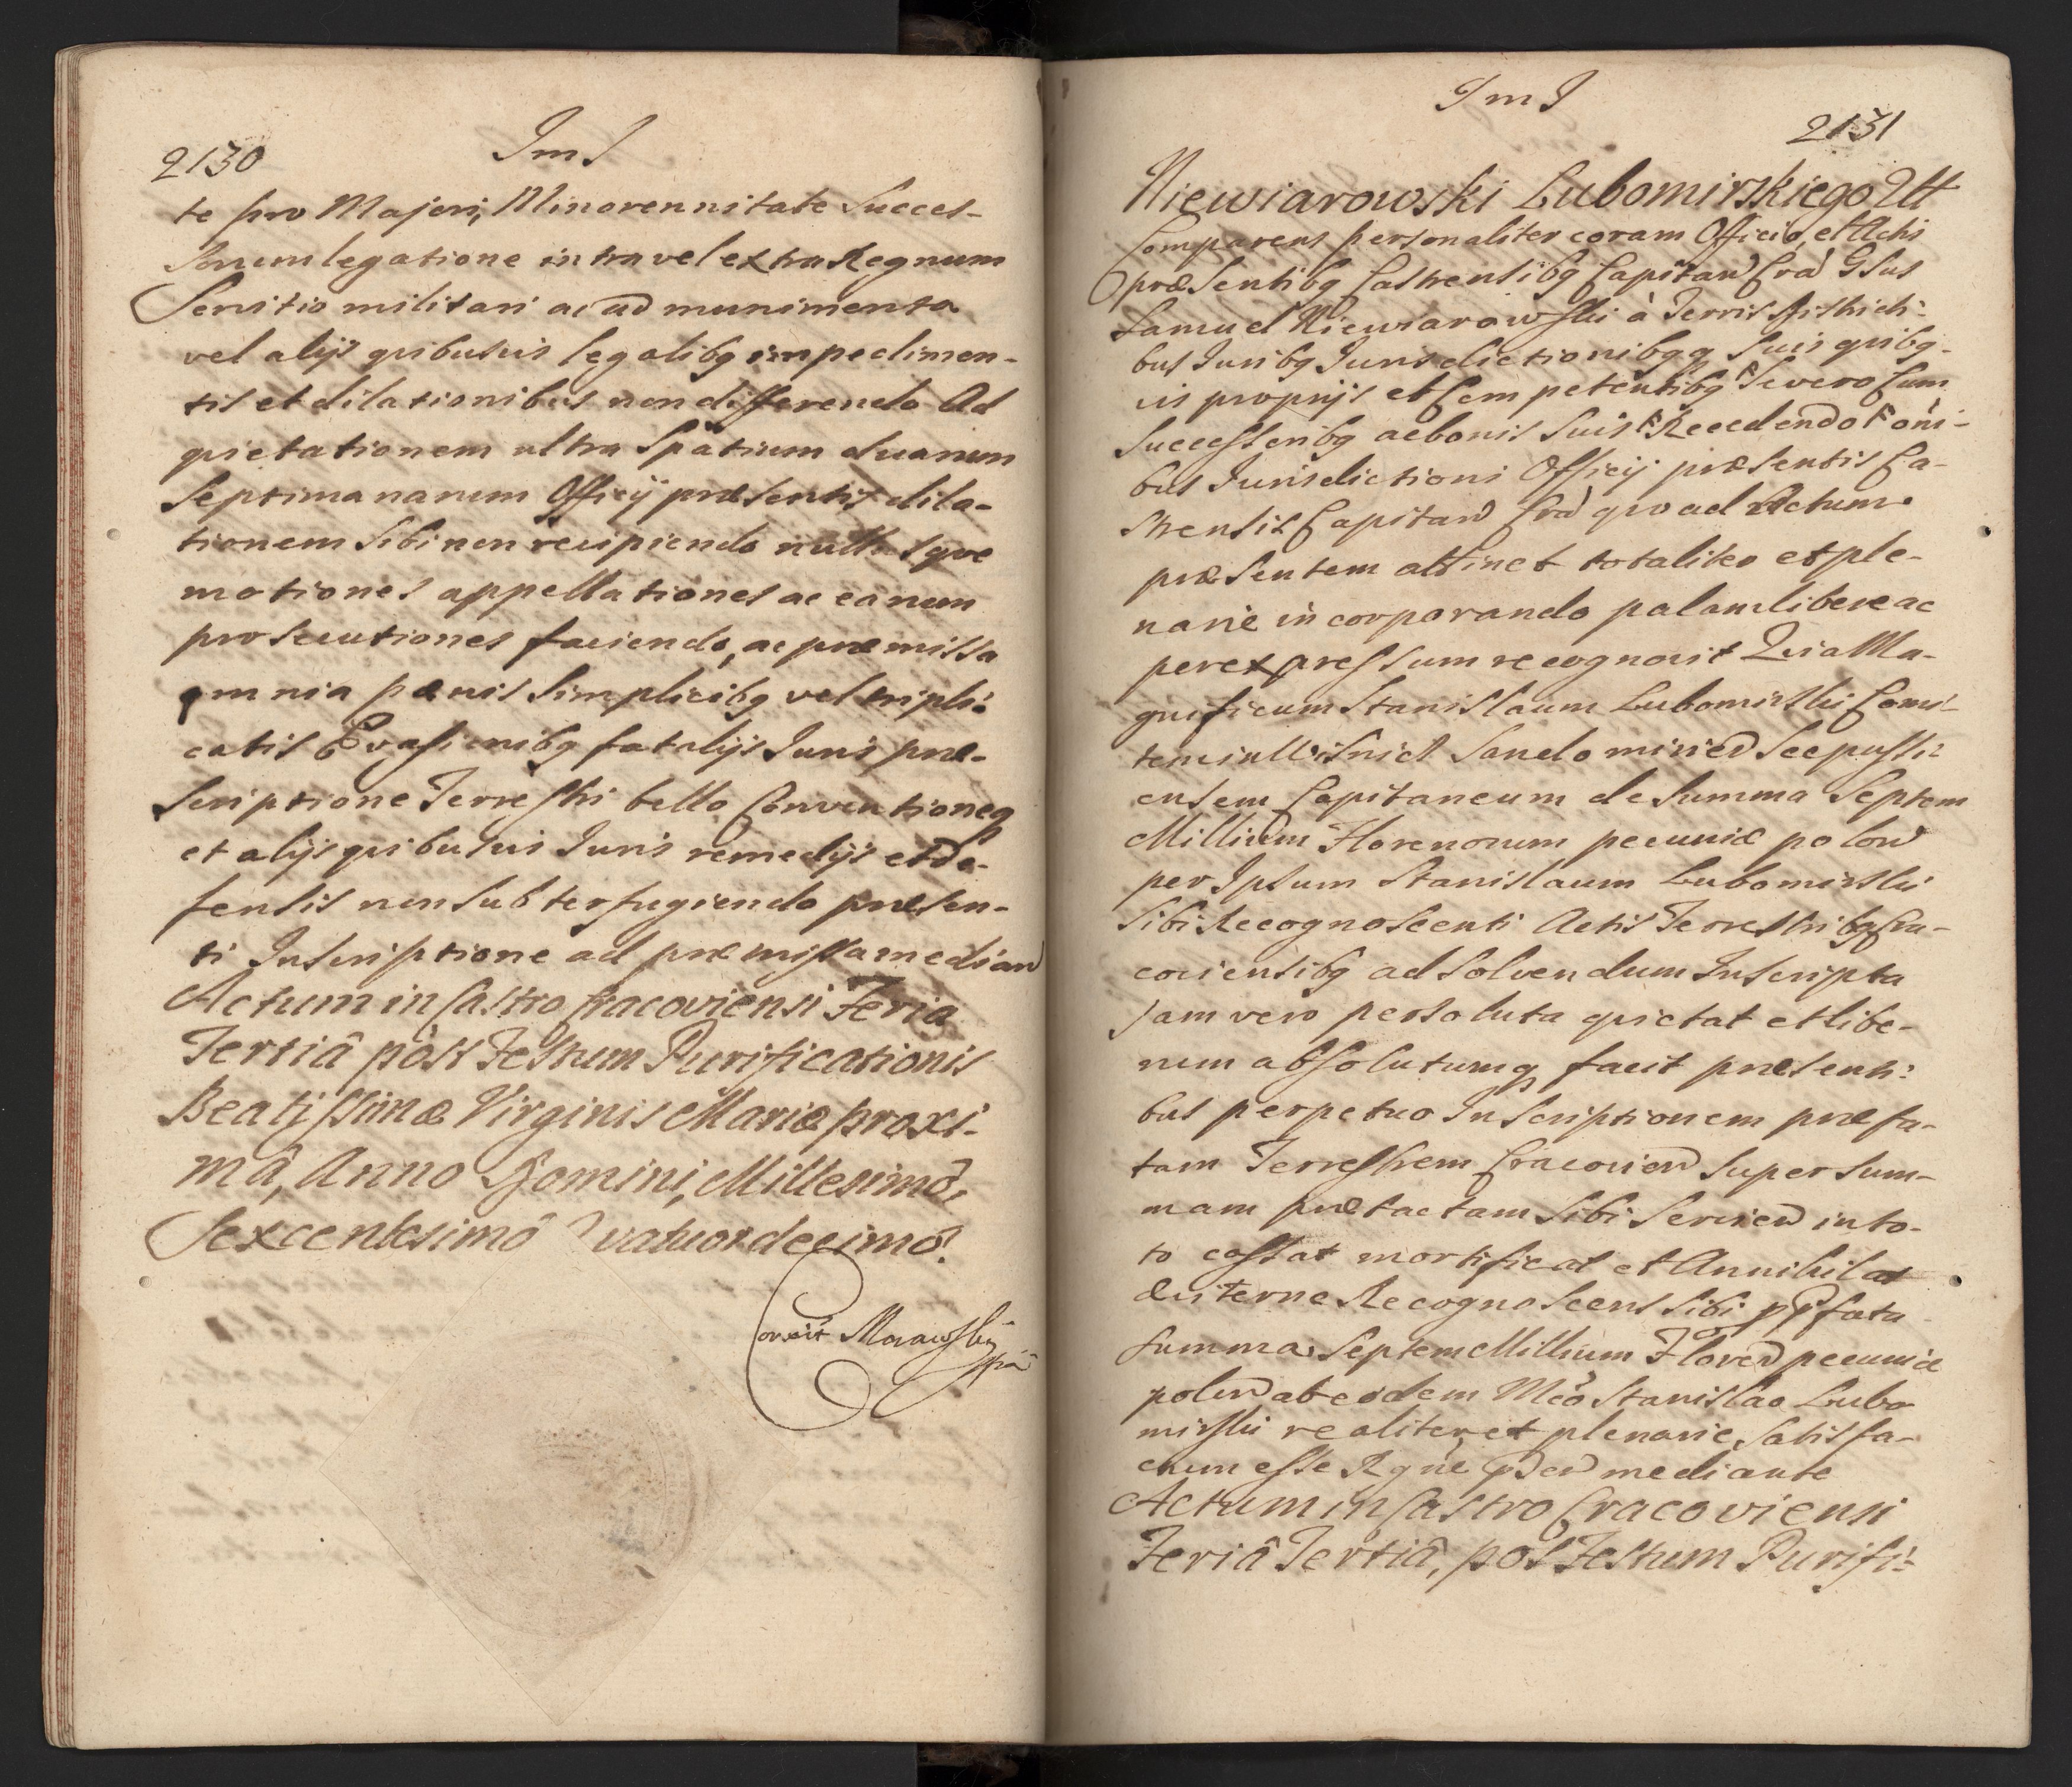 2130
ImJ
te pro Majori, Minorennitate Succes-
sorum legatione intra vel extra Regnum
Servitio militari ac ad munimenta
vel alijs quibusvis legalibq impedimen-
tis et dilationibus non differendo Ad
quietationem ultra Spatium duarum
Septimanarum Officij præsentis dila-
tionem sibi non recipiendo nullasque
motiones appellationes ac earum
prosecutiones faciendo, ac præmissa
omnia pænis Simplicibq vel tripli-
catis Evasionibq fatalijs Juris præ-
scriptione Terrestri bello Conventioneq
et alijs quibusvis Juris remedijs et de-
fensis non subterfugiendo præsen-
ti Inscriptione ad præmissa median
Actum in Castro Cracoviensi Feria
Tertiâ post Festum Purificationis
Beatissimæ Virginis Mariæ proxi-
mâ, Anno Domini, Millesimô,
Sexcentesimô Quatuordecimô.
Correxit Morawski
ImJ
2131
Niewiarowski Lubomirskiego Qtt
Comparens personaliter coram Officio, et Actis
præsentibq Castrensibq Capitan Cra Gsus
Samuel Niewiarowski à Terris Districti-
bus Juribq Jurisdictionibqq Suis quibq-
vis proprijs et Competentibq Se vero Cum
Successoribq ac bonis Suis Recedendo oni-
bus Jurisdictioni Officij præsentis Ca-
strensis Capitan Cra quoad Actum
præsentem attinet totaliter et ple-
narie incorporando palam libere ac
per expressum recognovit Quia Ma-
gnificum Stanislaum Lubomirski Comi-
tem in Wisnicz Sandomirien Scepusi-
ensem Capitaneum de Summa Septem
Millium Florenorum pecuniæ polon
per Ipsum Stanislaum Lubomirski
sibi Recognoscenti Actis Terrestribq Cra-
coviensibq ad solvendum Inscripta
Jam vero persoluta quietat et libe-
rum absolutumq facit præsenti-
bus perpetuo Inscriptionem præfa-
tam Terrestrem Cracovien super sum-
mam prætactam sibi Servien in to-
to cassat mortificat et Annihilat
æviterne Recognoscens sibi præfata
Summa Septem Millium Floren pecuniæ
polon ab eodem Mco Stanislao Lubo
mirski realiter et plenarie Satisfa-
ctum esse Rgne mediante
Actum in Castro Cracoviensi
Feriâ Tertiâ, post Festum Purifi-